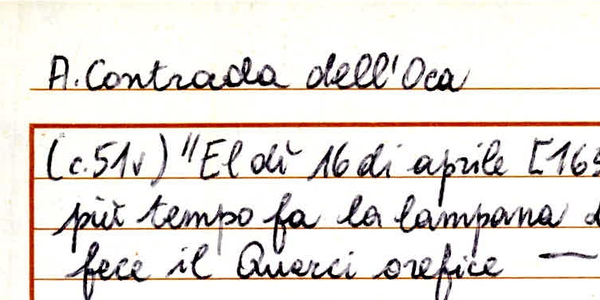 A. Contrada dell'Oca
(c. 51v) "El dì 16 di aprile [163
più tempo fa la lampana d
fece il Querci orefice —